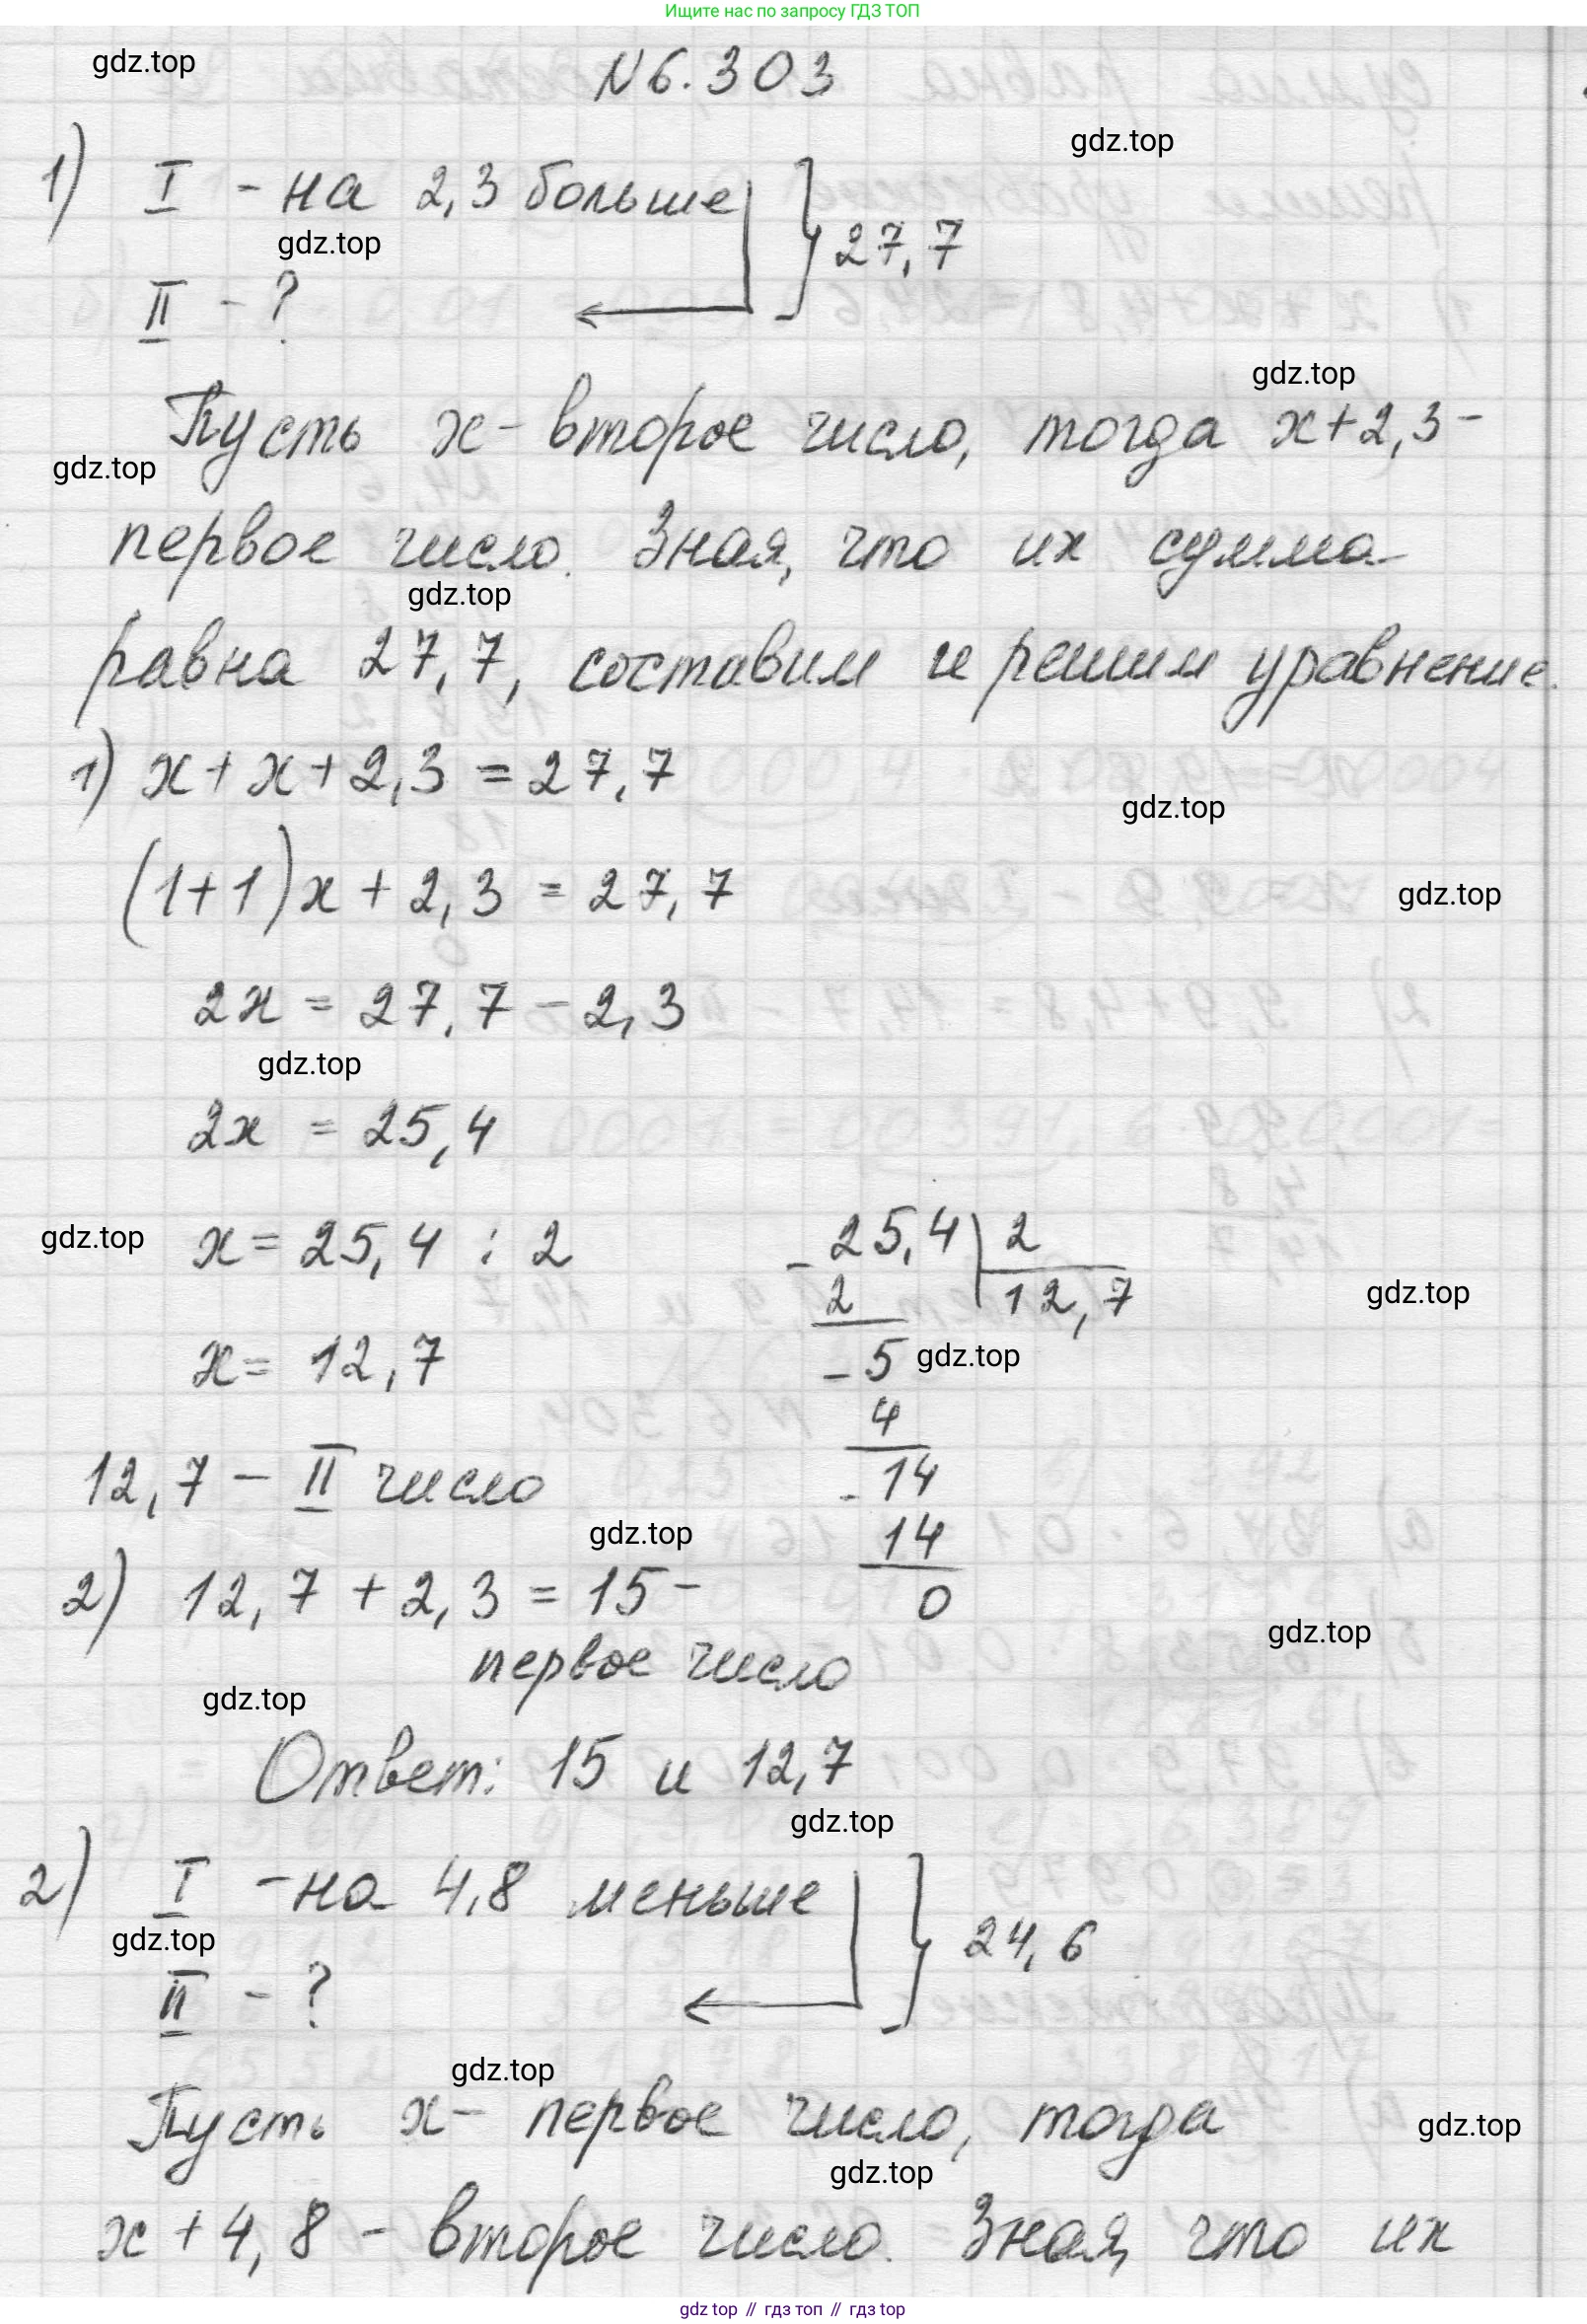 Ищите нас по запросу ГДЗ ТОП
gdz.top
N6.303
gdz.top
1) I - на 2,3 больше
27,7
gdz.top
II - ?
gdz.top
Пусть x - второе число, тогда x+2,3 -
gdz.top
первое число. Зная, что их сумма
gdz.top
равна 27,7, составим и решим уравнение.
1) x + x + 2,3 = 27,7
gdz.top
(1+1)x + 2,3 = 27,7
gdz.top
2x = 27,7 - 2,3
gdz.top
2x = 25,4
gdz.top
x = 25,4 : 2
x = 12,7
- 25,4 | 2
2 12,7
gdz.top
- 5
gdz.top
4
- 14
14
0
12,7 - II число
gdz.top
2) 12,7 + 2,3 = 15 -
gdz.top
первое число
gdz.top
Ответ: 15 и 12,7
gdz.top
2) I - на 4,8 меньше
24,6
gdz.top
II - ?
gdz.top
Пусть x - первое число, тогда
gdz.top
gdz.top
x + 4,8 - второе число. Зная, что их
gdz top // гдз топ // gdz top